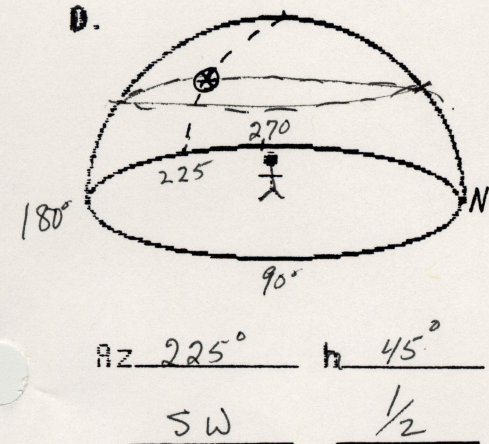 D.
270
225
N
180°
90°
Az 225° h 45°
SW 1/2